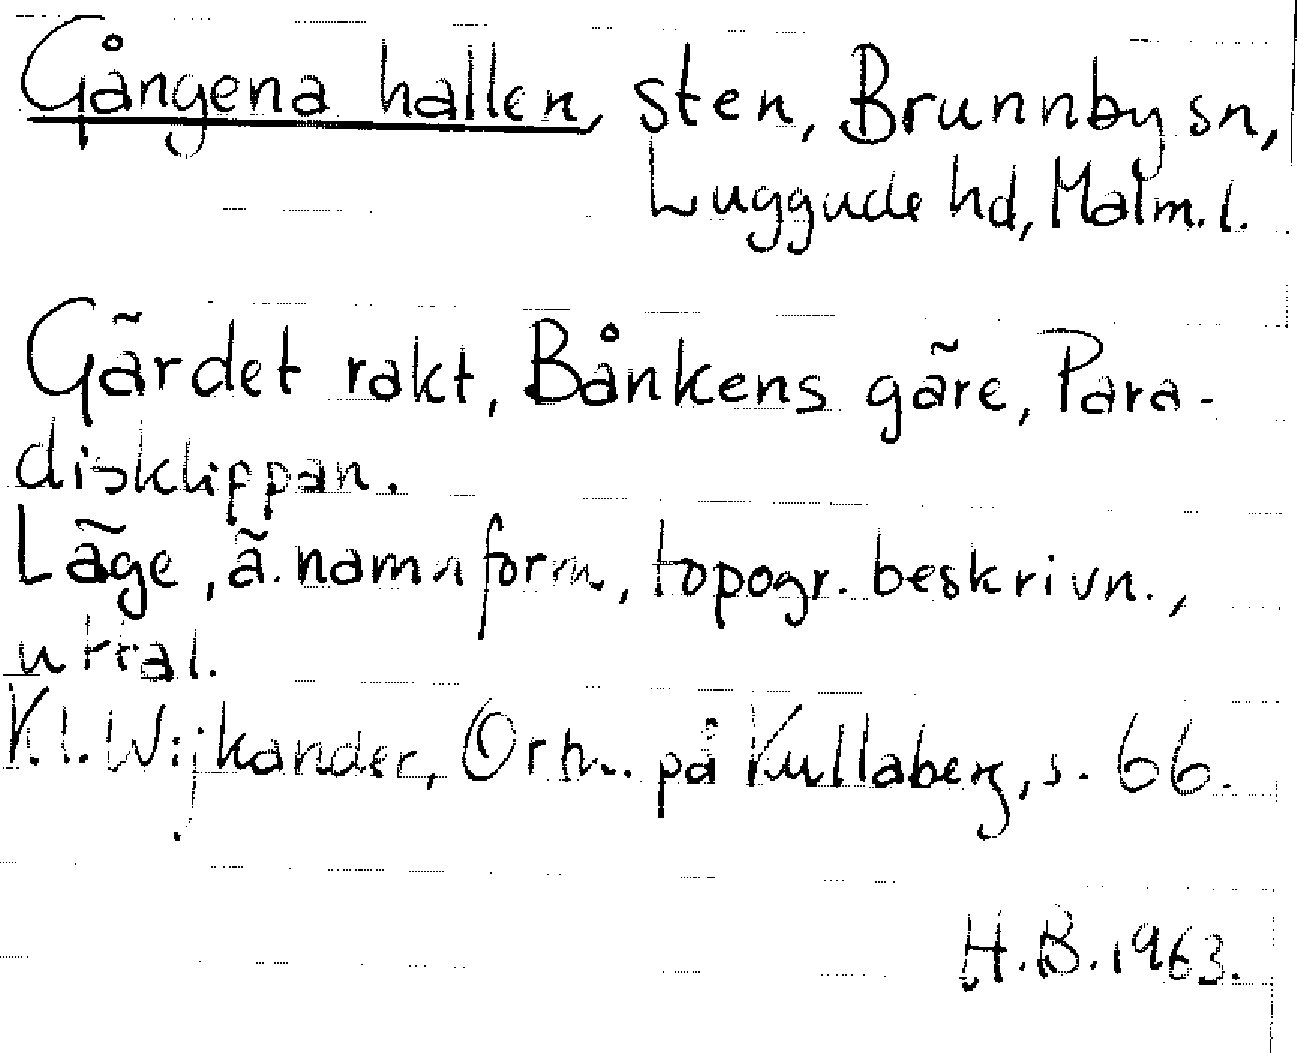 Gångena hallen, sten, Brunnby sn,
Luggude hd, Malm. l.
Gärdet rakt, Bånkens gäre, Para-
disklippan.
Läge, ä. namnform, topogr. beskrivn.,
uttal.
K. I. Wijkander, Ortn. på Kullaberg, s. 66.
H. B. 1963.